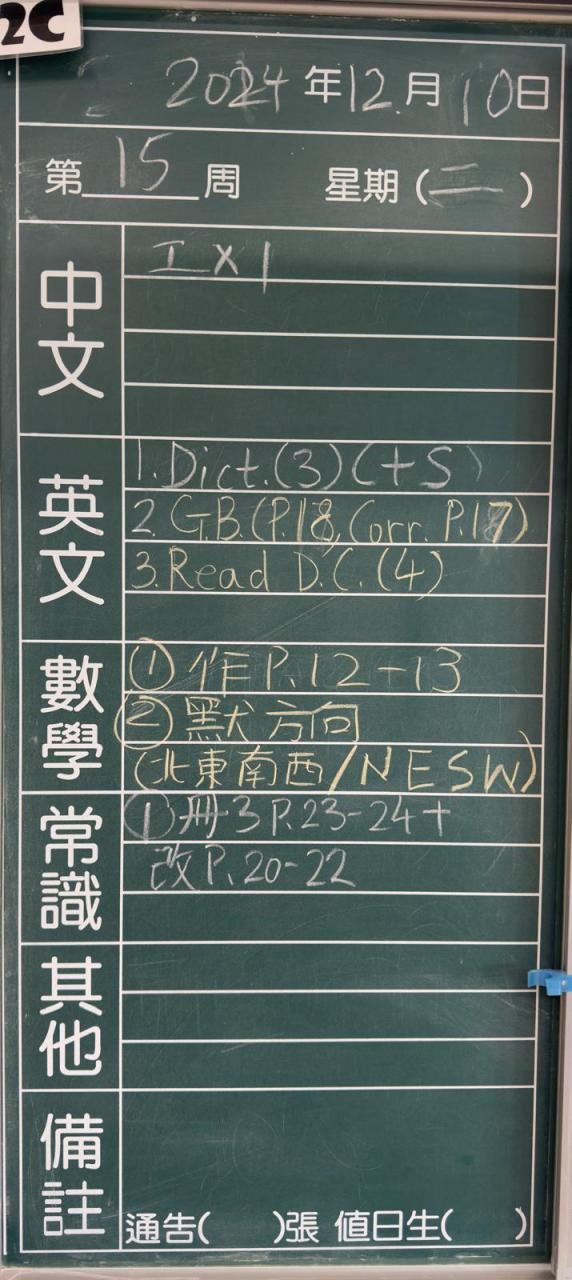 2C
2024年12月10日
第15周 星期(二)
中文
工×1
英文
1. Dict. (3) (+S)
2. G.B. (P.18, Corr. P.17)
3. Read D.C. (4)
數學
① 作P.12-13
② 默方向
(北東南西/NESW)
常識
① 冊3 P.23-24+
改P.20-22
其他
備註
通告( )張 值日生( )